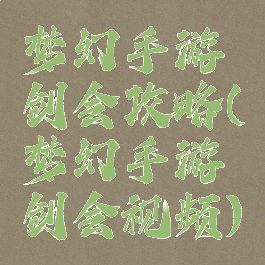 梦幻手游
剑会攻略(
梦幻手游
剑会视频)